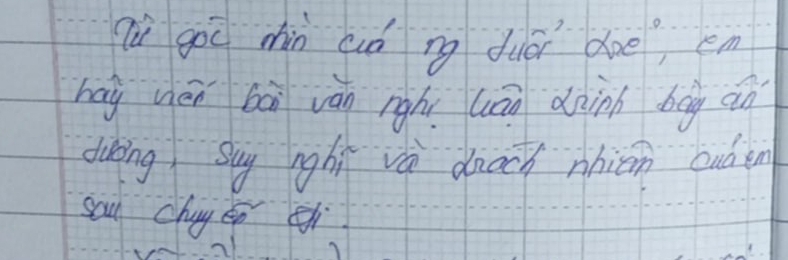 Từ góc nhìn của ng tuổi trẻ, em
hãy viết bài văn nghị luận trình bày ấn
tượng, suy nghĩ và trách nhiệm của em
sau chuyến đi.